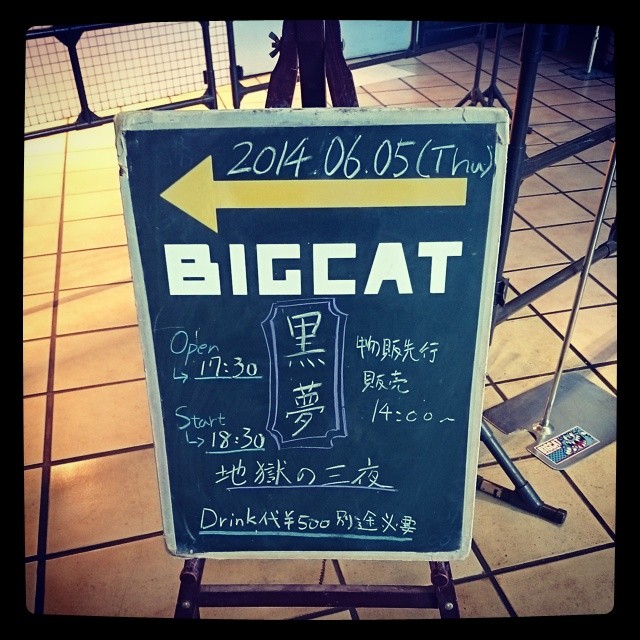 2014.06.05(Thu)
BIGCAT
Open
17:30
Start
18:30
黒夢
物販先行
販売
14:00~
地獄の三夜
Drink代¥500別途必要